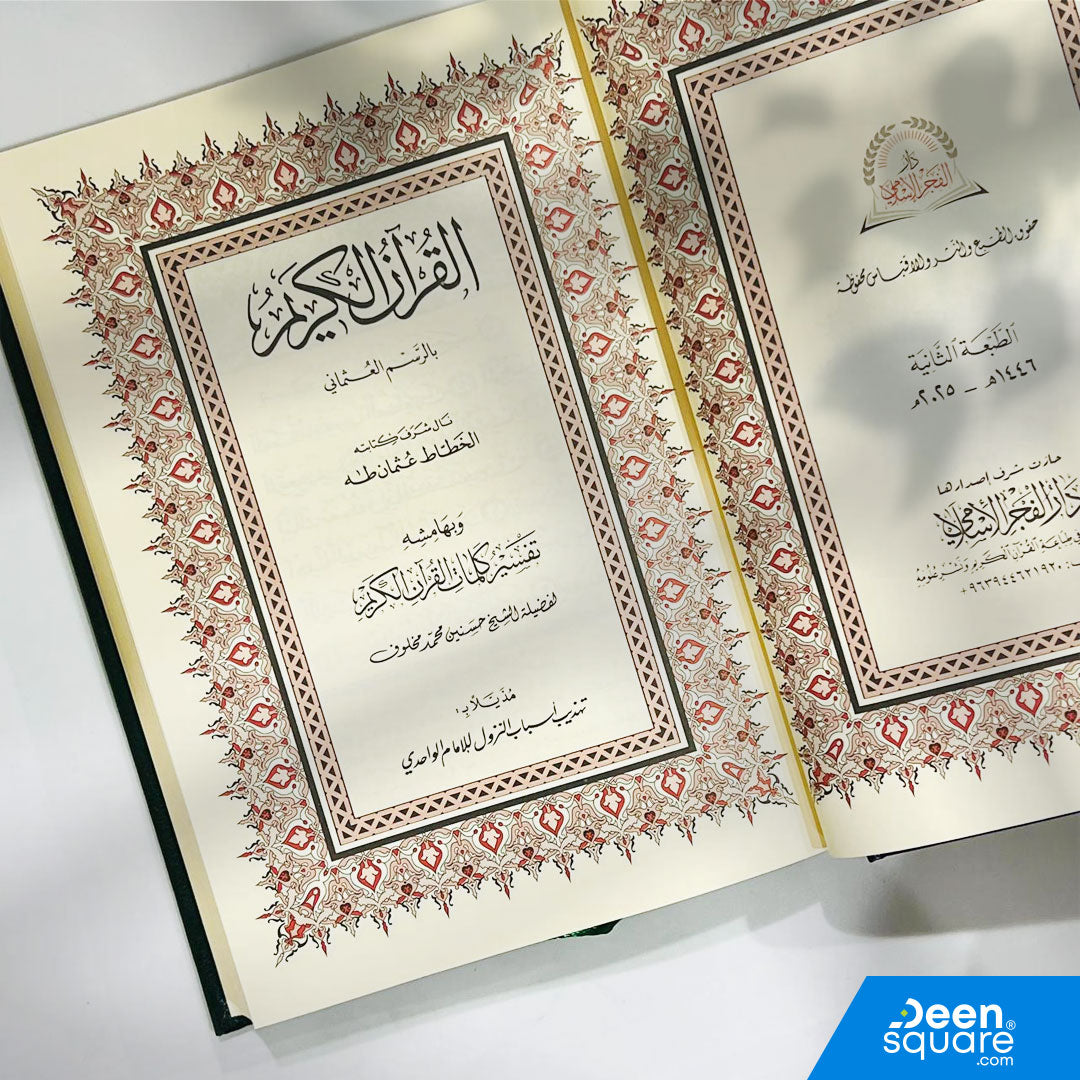 القُرآنُ الكَرِيمُ
بالرَّسْمِ العُثماني
نَالَ شَرَفَ كِتَابَتِه
الخَطَّاط عُثمان طٰه
وَبِهَامِشِهِ
تَفْسِيْر كَلِمَاتِ القُرْآنِ الكَرِيْمِ
لفضيلة الشيخ حسنين محمّد مخلوف
مُذَيَّلًا بِ:
تهذيب أسباب النزول للإمام الواحدي
دَارُ
الفَجْرِ الإسْلَامِي
حقوق الطبع والنشر والاقتباس محفوظة
الطَّبْعَة الثَّانِيَة
١٤٤٦هـ - ٢٠٢٥م
حازت شرف إصدارها
دَارُ الفَجْرِ الإسْلَامِي
طباعة القرآن الكريم ونشر علومه
+٩٦٣٩٤٤٦٢١٩٢٠
Deen
square®
.com